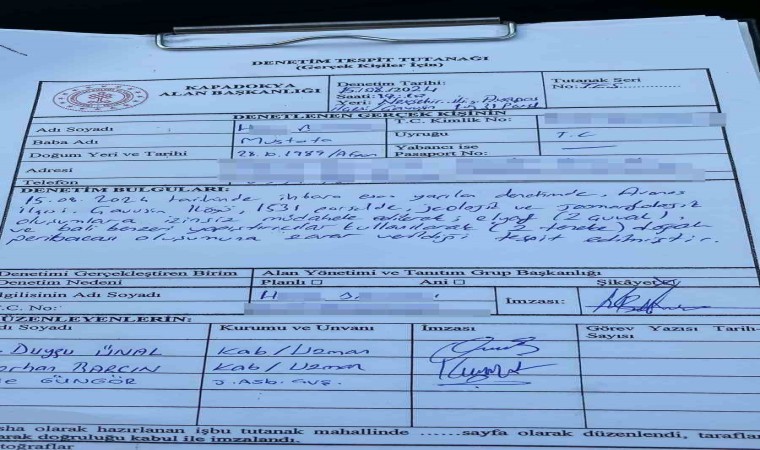 DENETİM TESPİT TUTANAĞI
(Gerçek Kişiler İçin)
KAPADOKYA
ALAN BAŞKANLIĞI
Denetim Tarihi:
15/08/2024
Saati:
Yeri: Nevşehir
Tutanak Seri
No:
DENETLENEN GERÇEK KİŞİNİN
Adı Soyadı
T.C. Kimlik No:
Baba Adı
Mustafa
Uyruğu
T.C
Doğum Yeri ve Tarihi
28.6.1989/
Yabancı ise
Pasaport No:
Adresi
Telefon
DENETİM BULGULARI:
15.08.2024 tarihinde ihbara esas yapılan denetimde, Avanos
ilçesi, Çavuşin Köyü, 1531 parselde jeolojik ve jeomorfolojik
oluşumlara izinsiz müdahale edilerek; elyaf (2 çuval),
ve bali benzeri yapıştırıcılar kullanılarak (2 teneke) doğal
peribacası oluşumuna zarar verildiği tespit edilmiştir.
Denetimi Gerçekleştiren Birim
Alan Yönetimi ve Tanıtım Grup Başkanlığı
Denetim Nedeni
Planlı □
Ani □
Şikâyet
İlgilisinin Adı Soyadı
İmzası:
T.C. No:
DÜZENLEYENLERİN:
Adı Soyadı
Kurumu ve Unvanı
İmzası
Görev Yazısı Tarih-
Sayısı
Duygu ÜNAL
Kab/Uzman
BARÇIN
Kab/Uzman
GÜNGÖR
J. Asb.
sha olarak hazırlanan işbu tutanak mahallinde ......sayfa olarak düzenlendi, taraflar
arak doğruluğu kabul ile imzalandı.
toğraflar